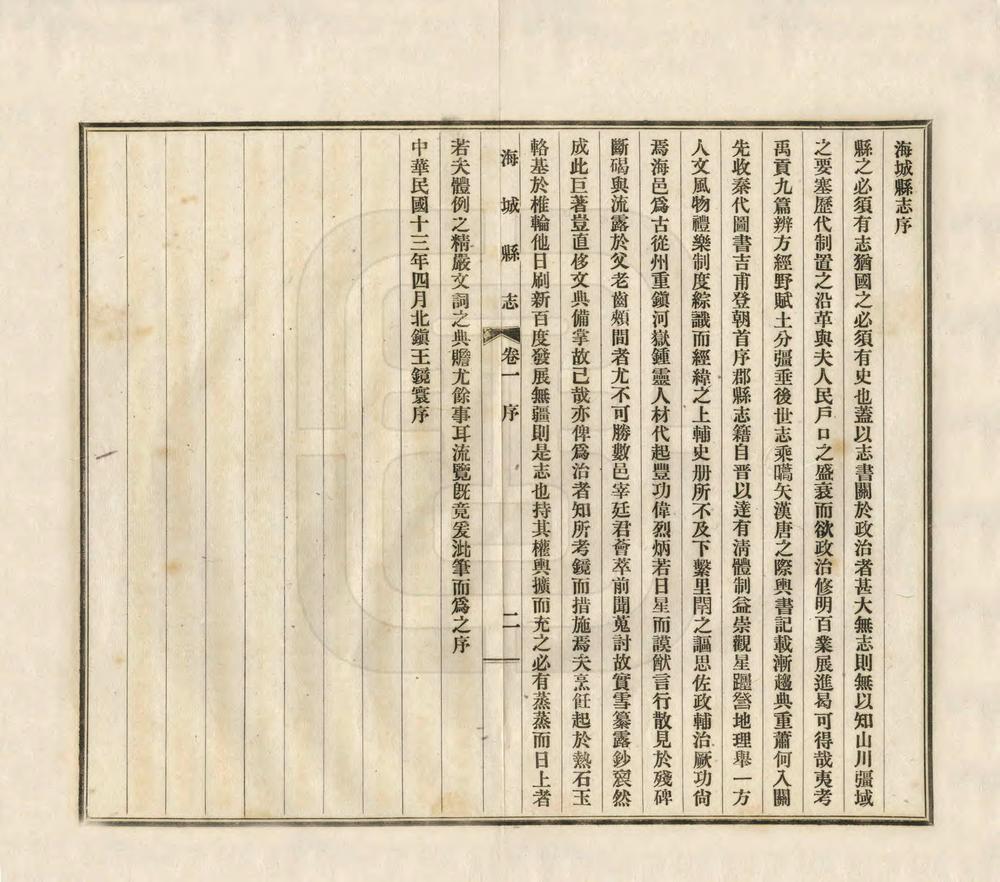 海城縣志序
縣之必須有志猶國之必須有史也蓋以志書關於政治者甚大無志則無以知山川疆域
之要塞歷代制置之沿革與夫人民戶口之盛衰而欲政治修明百業展進曷可得哉夷考
禹貢九篇辨方經野賦土分疆垂後世志乘嚆矢漢唐之際輿書記載漸趨典重蕭何入關
先收秦代圖書吉甫登朝首序郡縣志籍自晋以達有清體制益崇觀星躔誉地理舉一方
人文風物禮樂制度綜識而經緯之上輔史册所不及下繫里閈之謳思佐政輔治厥功尙
焉海邑爲古從州重鎭河嶽鍾靈人材代起豐功偉烈炳若日星而謨猷言行散見於殘碑
斷碣與流露於父老齒頰間者尤不可勝數邑宰廷君薈萃前聞蒐討故實雪纂露鈔裒然
成此巨著豈直侈文典備掌故已哉亦俾爲治者知所考鏡而措施焉夫烹飪起於熱石玉
輅基於椎輪他日刷新百度發展無疆則是志也持其權輿擴而充之必有蒸蒸而日上者
海城縣志 卷一 序 二
若夫體例之精嚴文詞之典贍尤餘事耳流覽旣竟爰泚筆而爲之序
中華民國十三年四月北鎭王鏡寰序